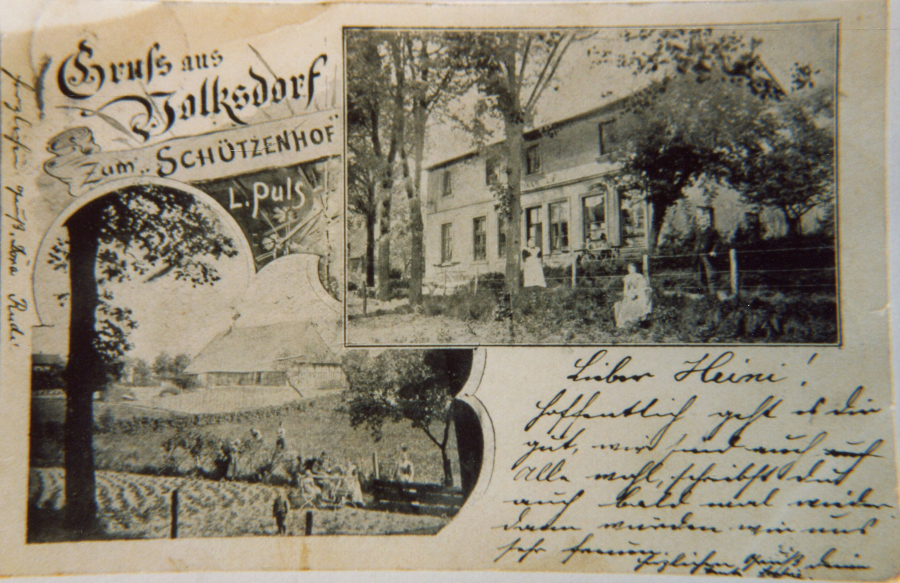 Gruss aus
Volksdorf
Zum „SCHÜTZENHOF"
L. Puls
Lieber Heini!
Hoffentlich geht es dir
gut, wir sind auch auf
Alle wohl, schreibst du
auch bald mal wieder
dann würden wir uns
sehr freuen
herzlichen Gruß deine